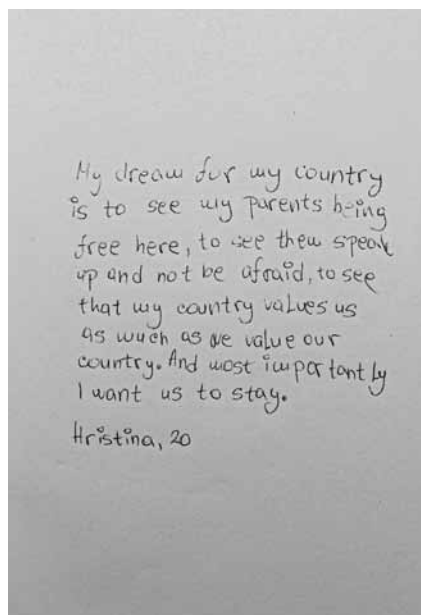 My dream for my country
is to see my parents being
free here, to see them speak
up and not be afraid, to see
that my country values us
as much as we value our
country. And most importantly
I want us to stay.
Hristina, 20